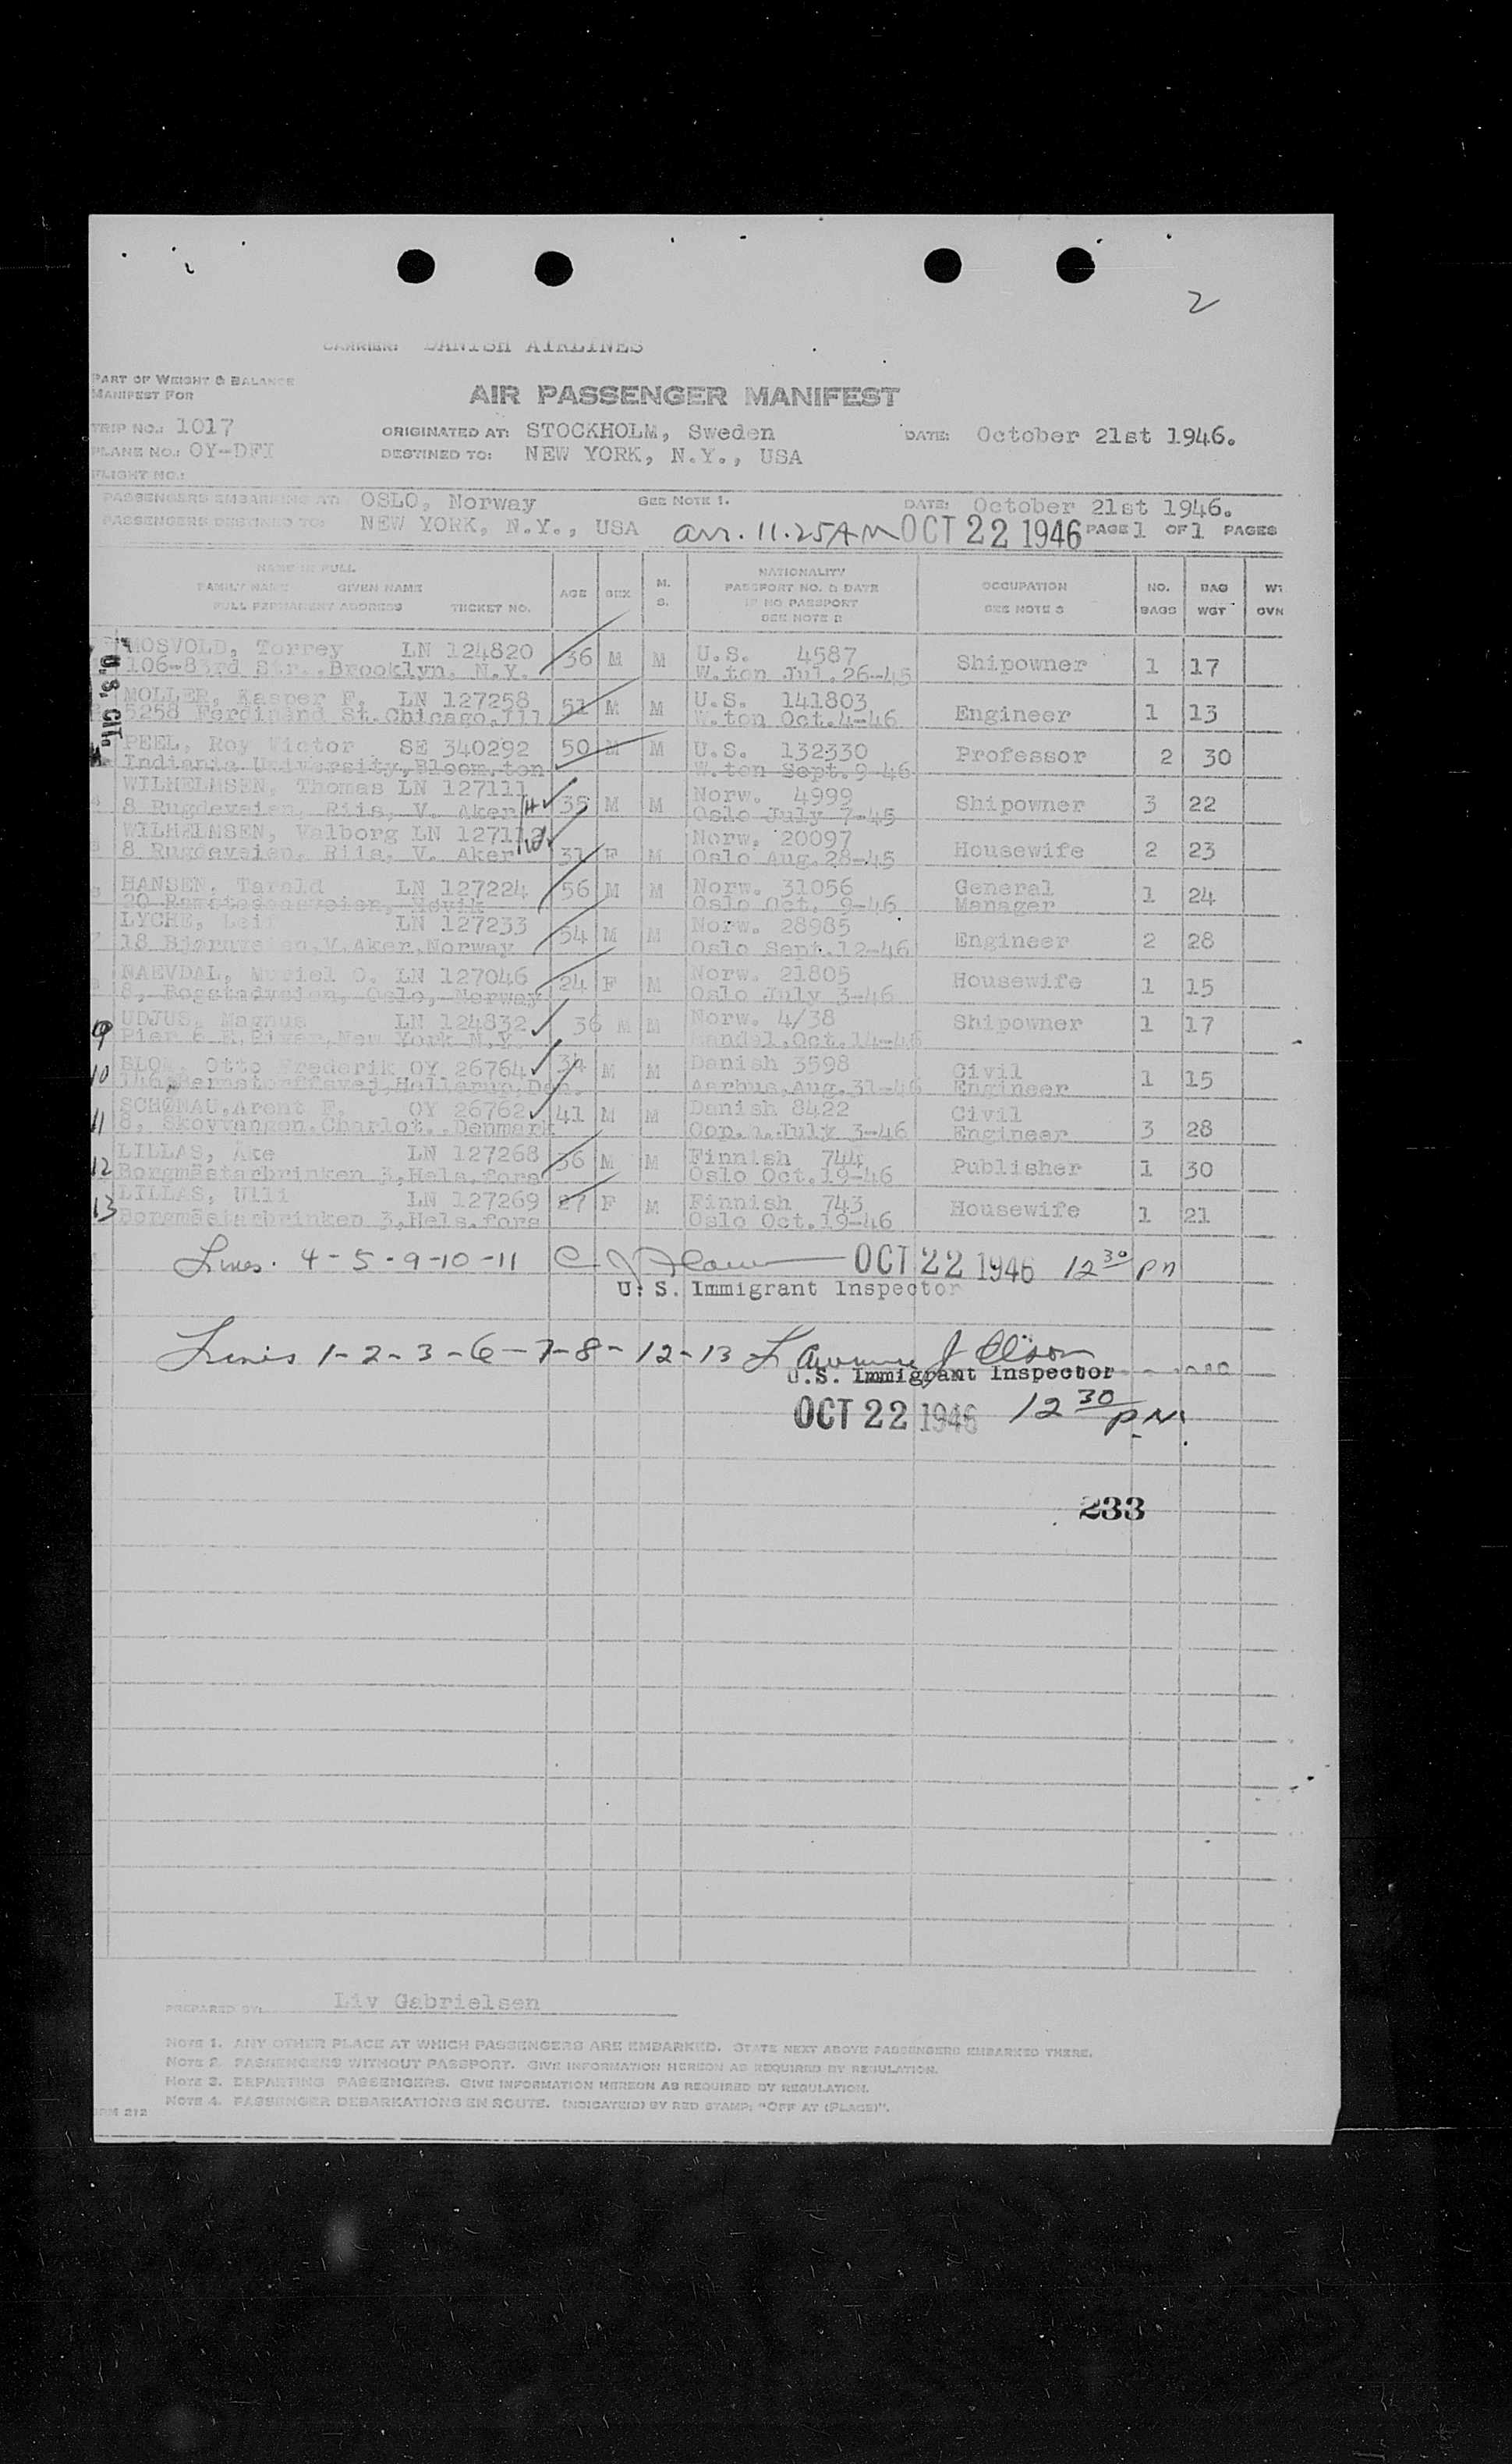 2
CARRIER: DANISH AIRLINES
PART OF WEIGHT & BALANCE
MANIFEST FOR
AIR PASSENGER MANIFEST
TRIP NO.: 1017 ORIGINATED AT: STOCKHOLM, Sweden DATE: October 21st 1946.
PLANE NO.: OY-DFI DESTINED TO: NEW YORK, N.Y., USA
FLIGHT NO.:
PASSENGERS EMBARKING AT: OSLO, Norway SEE NOTE 1. DATE: October 21st 1946.
PASSENGERS DESTINED TO: NEW YORK, N.Y., USA arr. 11.25 AM OCT 22 1946 PAGE 1 OF 1 PAGES
NAME IN FULL
FAMILY NAME GIVEN NAME
FULL PERMANENT ADDRESS TICKET NO.
AGE SEX M. S.
NATIONALITY
PASSPORT NO. & DATE
IF NO PASSPORT
SEE NOTE 2
OCCUPATION
SEE NOTE 3
NO. BAGS
BAG WGT
WT OVN
U.S. CIT.
MOSVOLD, Torrey LN 124820 36 M M U.S. 4587 Shipowner 1 17
106-83rd Str..Brooklyn, N.Y. W.ton Jul.26-45
MOLLER, Kasper F. LN 127258 51 M M U.S. 141803 Engineer 1 13
5258 Ferdinand St.Chicago,Ill W.ton Oct.4-46
PEEL, Roy Victor SE 340292 50 M M U.S. 132330 Professor 2 30
Indiania University,Bloom.ton W.ton Sept.9-46
4 WILHELMSEN, Thomas LN 127111 H 35 M M Norw. 4999 Shipowner 3 22
8 Rugdeveien, Riis, V. Aker Oslo July 7-45
5 WILHELMSEN, Valborg LN 127112 W 31 F M Norw. 20097 Housewife 2 23
8 Rugdeveien, Riis, V. Aker Oslo Aug.28-45
6 HANSEN, Tarald LN 127224 56 M M Norw. 31056 General Manager 1 24
20 Høvik Oslo Oct. 9-46
7 LYCHE, Leif LN 127233 54 M M Norw. 28985 Engineer 2 28
18 V.Aker.Norway Oslo Sept.12-46
8 NAEVDAL, Muriel O. LN 127046 24 F M Norw. 21805 Housewife 1 15
8, Bogstadveien, Oslo, Norway Oslo July 3-46
9 UDJUS, Magnus LN 124832 36 M M Norw. 4/38 Shipowner 1 17
Pier 6 E.River,New York N.Y. Mandal,Oct.14-46
10 BLOM, Otto Frederik OY 26764 34 M M Danish 3598 Civil Engineer 1 15
146,Bernstorffsvej,Hellerup,Den. Aarhus,Aug.31-46
11 SCHØNAU,Arent F. OY 26762 41 M M Danish 8422 Civil Engineer 3 28
8, Skovvangen.Charlot..Denmark Cop.h.July 3-46
12 LILLAS, Åke LN 127268 36 M M Finnish 744 Publisher 1 30
Borgmästarbrinken 3,Hels.fors Oslo Oct.19-46
13 LILLAS, Ulli LN 127269 27 F M Finnish 743 Housewife 1 21
Borgmästarbrinken 3,Hels.fors Oslo Oct.19-46
Lines. 4-5-9-10-11 OCT 22 1946 12 30 PM
U. S. Immigrant Inspector
Lines 1-2-3-6-7-8-12-13 Lawrence J Olson
U.S. Immigrant Inspector
OCT 22 1946 12 30 PM
233
PREPARED BY: Liv Gabrielsen
NOTE 1. ANY OTHER PLACE AT WHICH PASSENGERS ARE EMBARKED. STATE NEXT ABOVE PASSENGERS EMBARKED THERE.
NOTE 2. PASSENGERS WITHOUT PASSPORT. GIVE INFORMATION HEREON AS REQUIRED BY REGULATION.
NOTE 3. DEPARTING PASSENGERS. GIVE INFORMATION HEREON AS REQUIRED BY REGULATION.
NOTE 4. PASSENGER DEBARKATIONS EN ROUTE. (INDICATE(D) BY RED STAMP: "OFF AT (PLACE)".
ORM 212